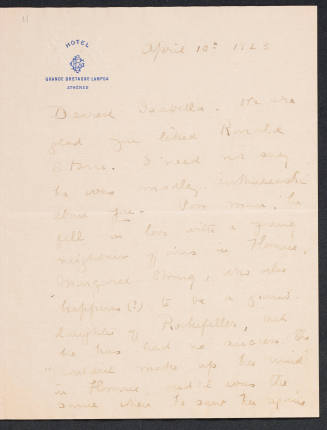 11
HOTEL
GRANDE BRETAGNE LAMPSA
ATHÈNES
April 10th 1923
Dearest Isabella. We are
glad you liked Ronald
Storrs. I need not say
he was madly enthusiastic
about you. Poor man! he
fell in love with a young
neighbour of ours in Florence,
Margaret Strong, who also
"happens (?) to be a grand-
daughter of Rockefeller, and
he has had no success. She
couldn't make up her mind
in Florence, and it was the
same when he saw her again